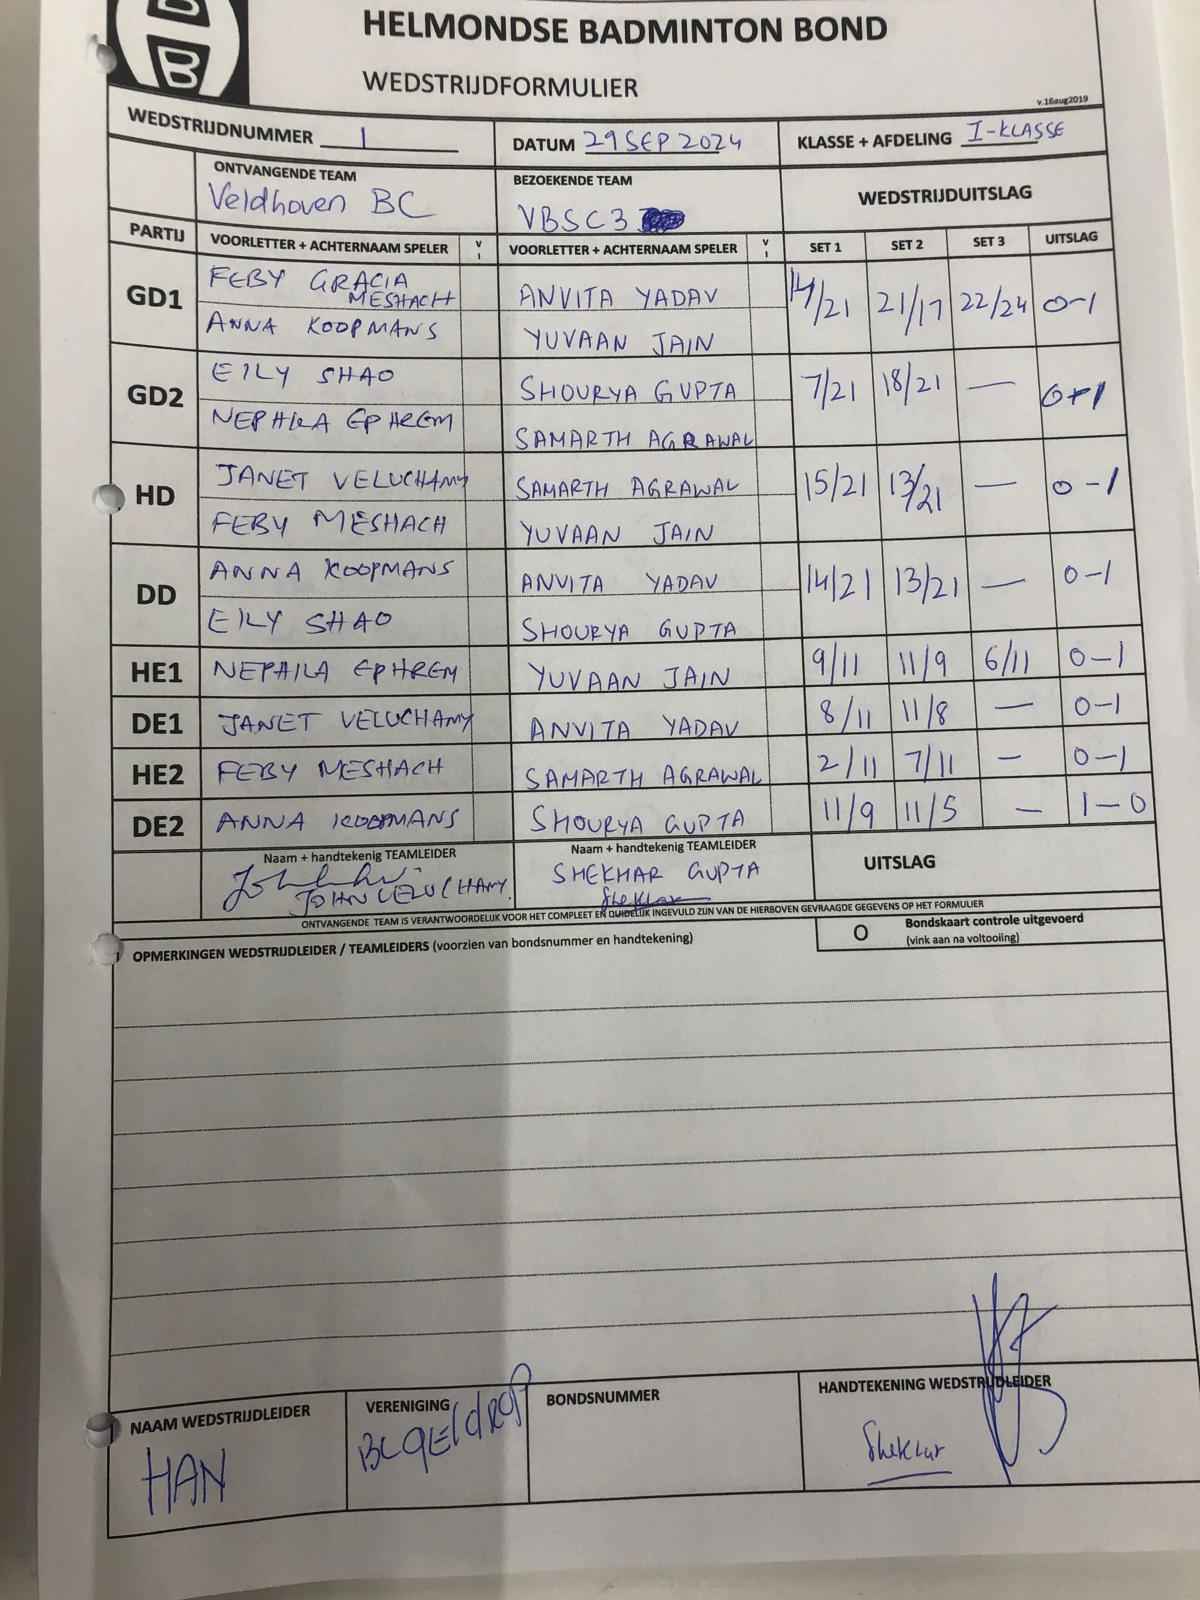 B
B
HELMONDSE BADMINTON BOND
WEDSTRIJDFORMULIER
v.16aug2019
WEDSTRIJDNUMMER 1 DATUM 29 SEP 2024 KLASSE + AFDELING I-KLASSE
ONTVANGENDE TEAM BEZOEKENDE TEAM WEDSTRIJDUITSLAG
Veldhoven BC VBSC3
PARTIJ VOORLETTER + ACHTERNAAM SPELER V I VOORLETTER + ACHTERNAAM SPELER V I SET 1 SET 2 SET 3 UITSLAG
GD1 FEBY GRACIA MESHACH ANVITA YADAV 14/21 21/17 22/24 0-1
ANNA KOOPMANS YUVAAN JAIN
GD2 EILY SHAO SHOURYA GUPTA 7/21 18/21 — 0-1
NEPHILA EPHREM SAMARTH AGRAWAL
HD JANET VELUCHAMY SAMARTH AGRAWAL 15/21 13/21 — 0-1
FEBY MESHACH YUVAAN JAIN
DD ANNA KOOPMANS ANVITA YADAV 14/21 13/21 — 0-1
EILY SHAO SHOURYA GUPTA
HE1 NEPHILA EPHREM YUVAAN JAIN 9/11 11/9 6/11 0-1
DE1 JANET VELUCHAMY ANVITA YADAV 8/11 11/8 — 0-1
HE2 FEBY MESHACH SAMARTH AGRAWAL 2/11 7/11 — 0-1
DE2 ANNA KOOPMANS SHOURYA GUPTA 11/9 11/5 — 1-0
Naam + handtekenig TEAMLEIDER Naam + handtekenig TEAMLEIDER UITSLAG
JOHN VELUCHAMY SHEKHAR GUPTA
Shekhar
ONTVANGENDE TEAM IS VERANTWOORDELIJK VOOR HET COMPLEET EN DUIDELIJK INGEVULD ZIJN VAN DE HIERBOVEN GEVRAAGDE GEGEVENS OP HET FORMULIER
OPMERKINGEN WEDSTRIJDLEIDER / TEAMLEIDERS (voorzien van bondsnummer en handtekening) O Bondskaart controle uitgevoerd
(vink aan na voltooiing)
NAAM WEDSTRIJDLEIDER VERENIGING BONDSNUMMER HANDTEKENING WEDSTRIJDLEIDER
HAN BCGEldROP Shekhar